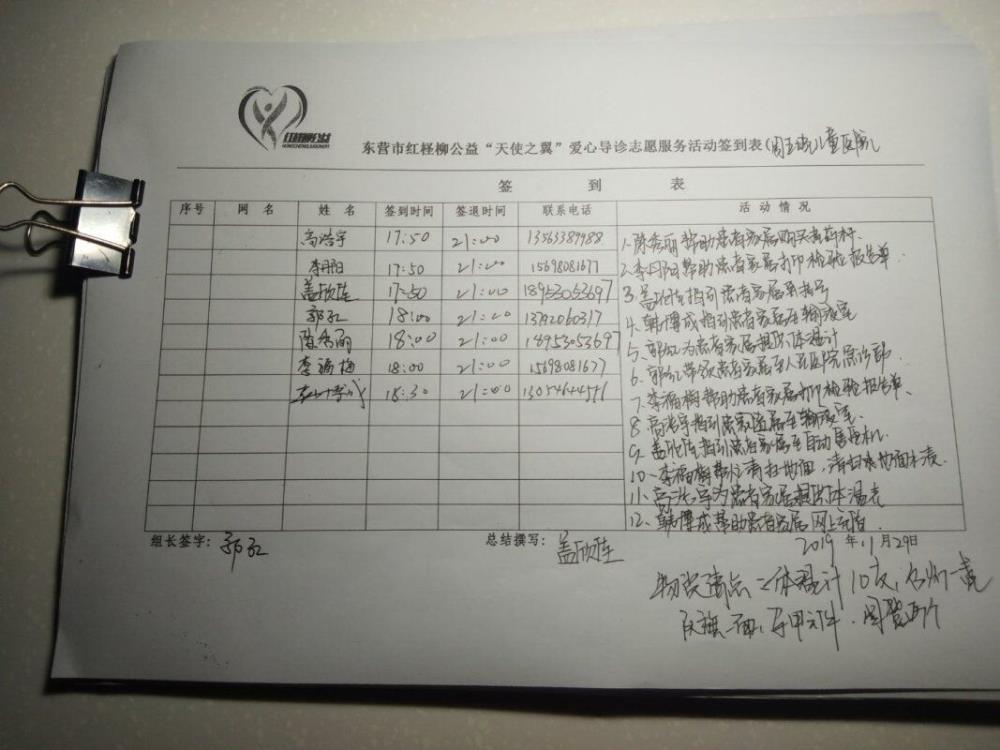 红柽柳公益
东营市红柽柳公益“天使之翼”爱心导诊志愿服务活动签到表(周五晚儿童医院)
签 到 表
序号 网 名 姓 名 签到时间 签退时间 联系电话 活 动 情 况
高浩宇 17:50 21:00 13563389988
李阳 17:50 21:00 15698081677
盖欣佳 17:50 21:00 18953053697
郭红 18:00 21:00
陈秀丽 18:00 21:00 18953053697
李福梅 18:00 21:00 15698081677
18:30 21:00 13054644576
1. 陈秀丽帮助患者家属购买耗材.
2. 李阳帮助患者家属打印检验报告单
3. 盖欣佳指引患者家属至挂号
4. 韩博成指引患者家属至输液室
5. 郭红为患者家属提供体温计
6. 郭红带领患者家属至人民医院急诊部.
7. 李福梅帮助患者家属打印检验报告单.
8. 高浩宇指引患者家属至输液室.
9. 盖欣佳指引患者家属至自动售货机.
10. 李福梅帮忙清扫地面,清扫来地面水渍.
11. 高浩宇为患者家属提供体温表
12. 韩博成帮助患者家属网上充值.
组长签字: 郭红 总结撰写: 盖欣佳
2019 年 11 月 29日
物资清点:体温计10支,